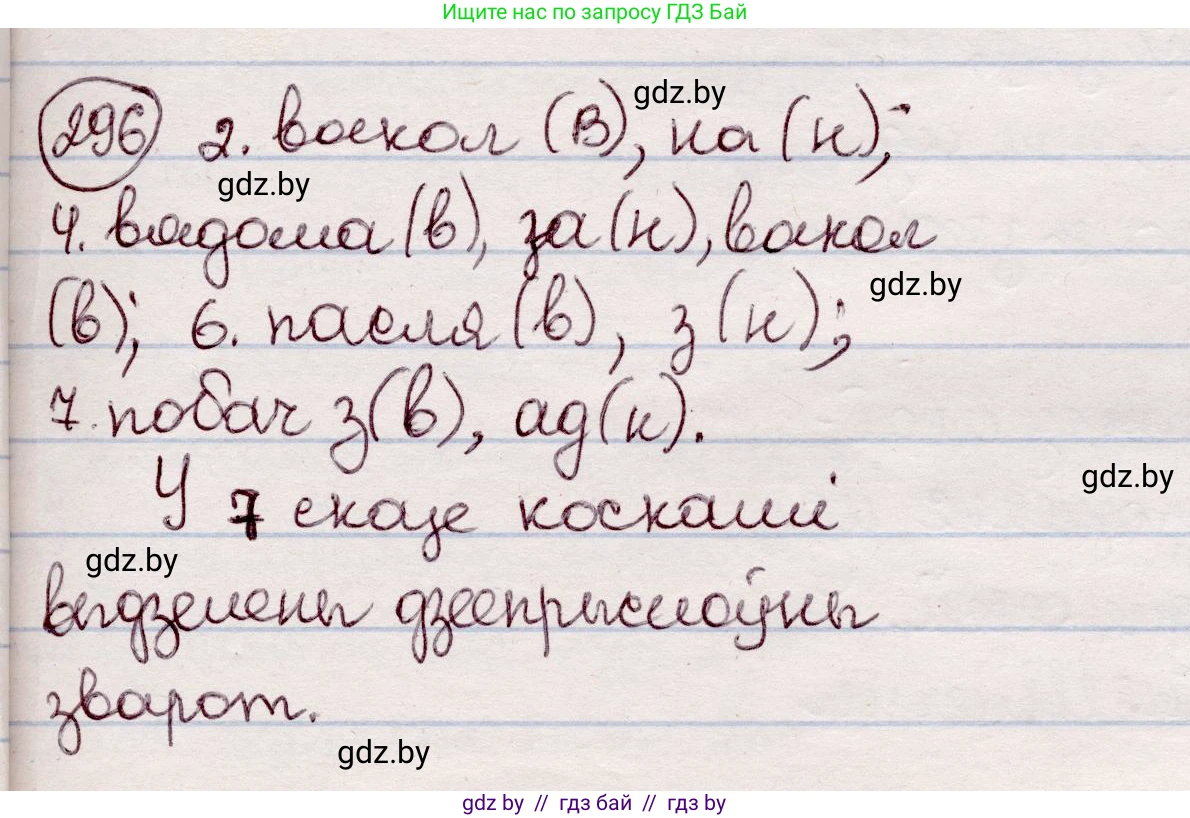 Ищите нас по запросу ГДЗ Бай
gdz.by
296 2. вокол (В), на (н);
gdz.by
4. вядома (в), за (н), вакол
gdz.by
(в); 6. пасля (в), з (н);
7. побач з (в), ад (н).
gdz.by
У 7 сказе коскамі
gdz.by
выдзелены дзеепрыслоўны
зварот.
gdz.by
gdz by // гдз бай // гдз by